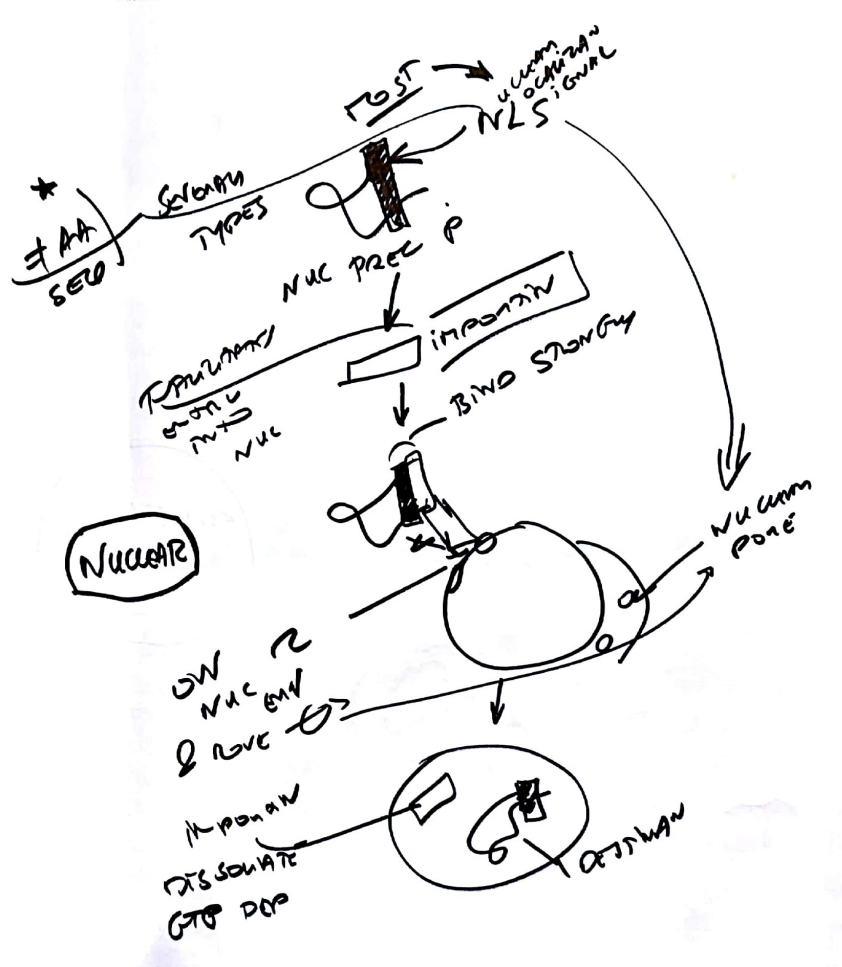 MOST
NUCLEAR
LOCALIZAN
SIGNAL
NLS
*
≠ AA
SEQ
SEVERAL
TYPES
NUC PREC P
IMPORTIN
FACILITATES
ENTRY
INTO
NUC
BIND STRONGLY
NUCLEAR
NUCLEAR
PORE
ON
NUC ENV
& MOVE
IMPORTIN
DISSOCIATE
GTP DEP
DESTINAN